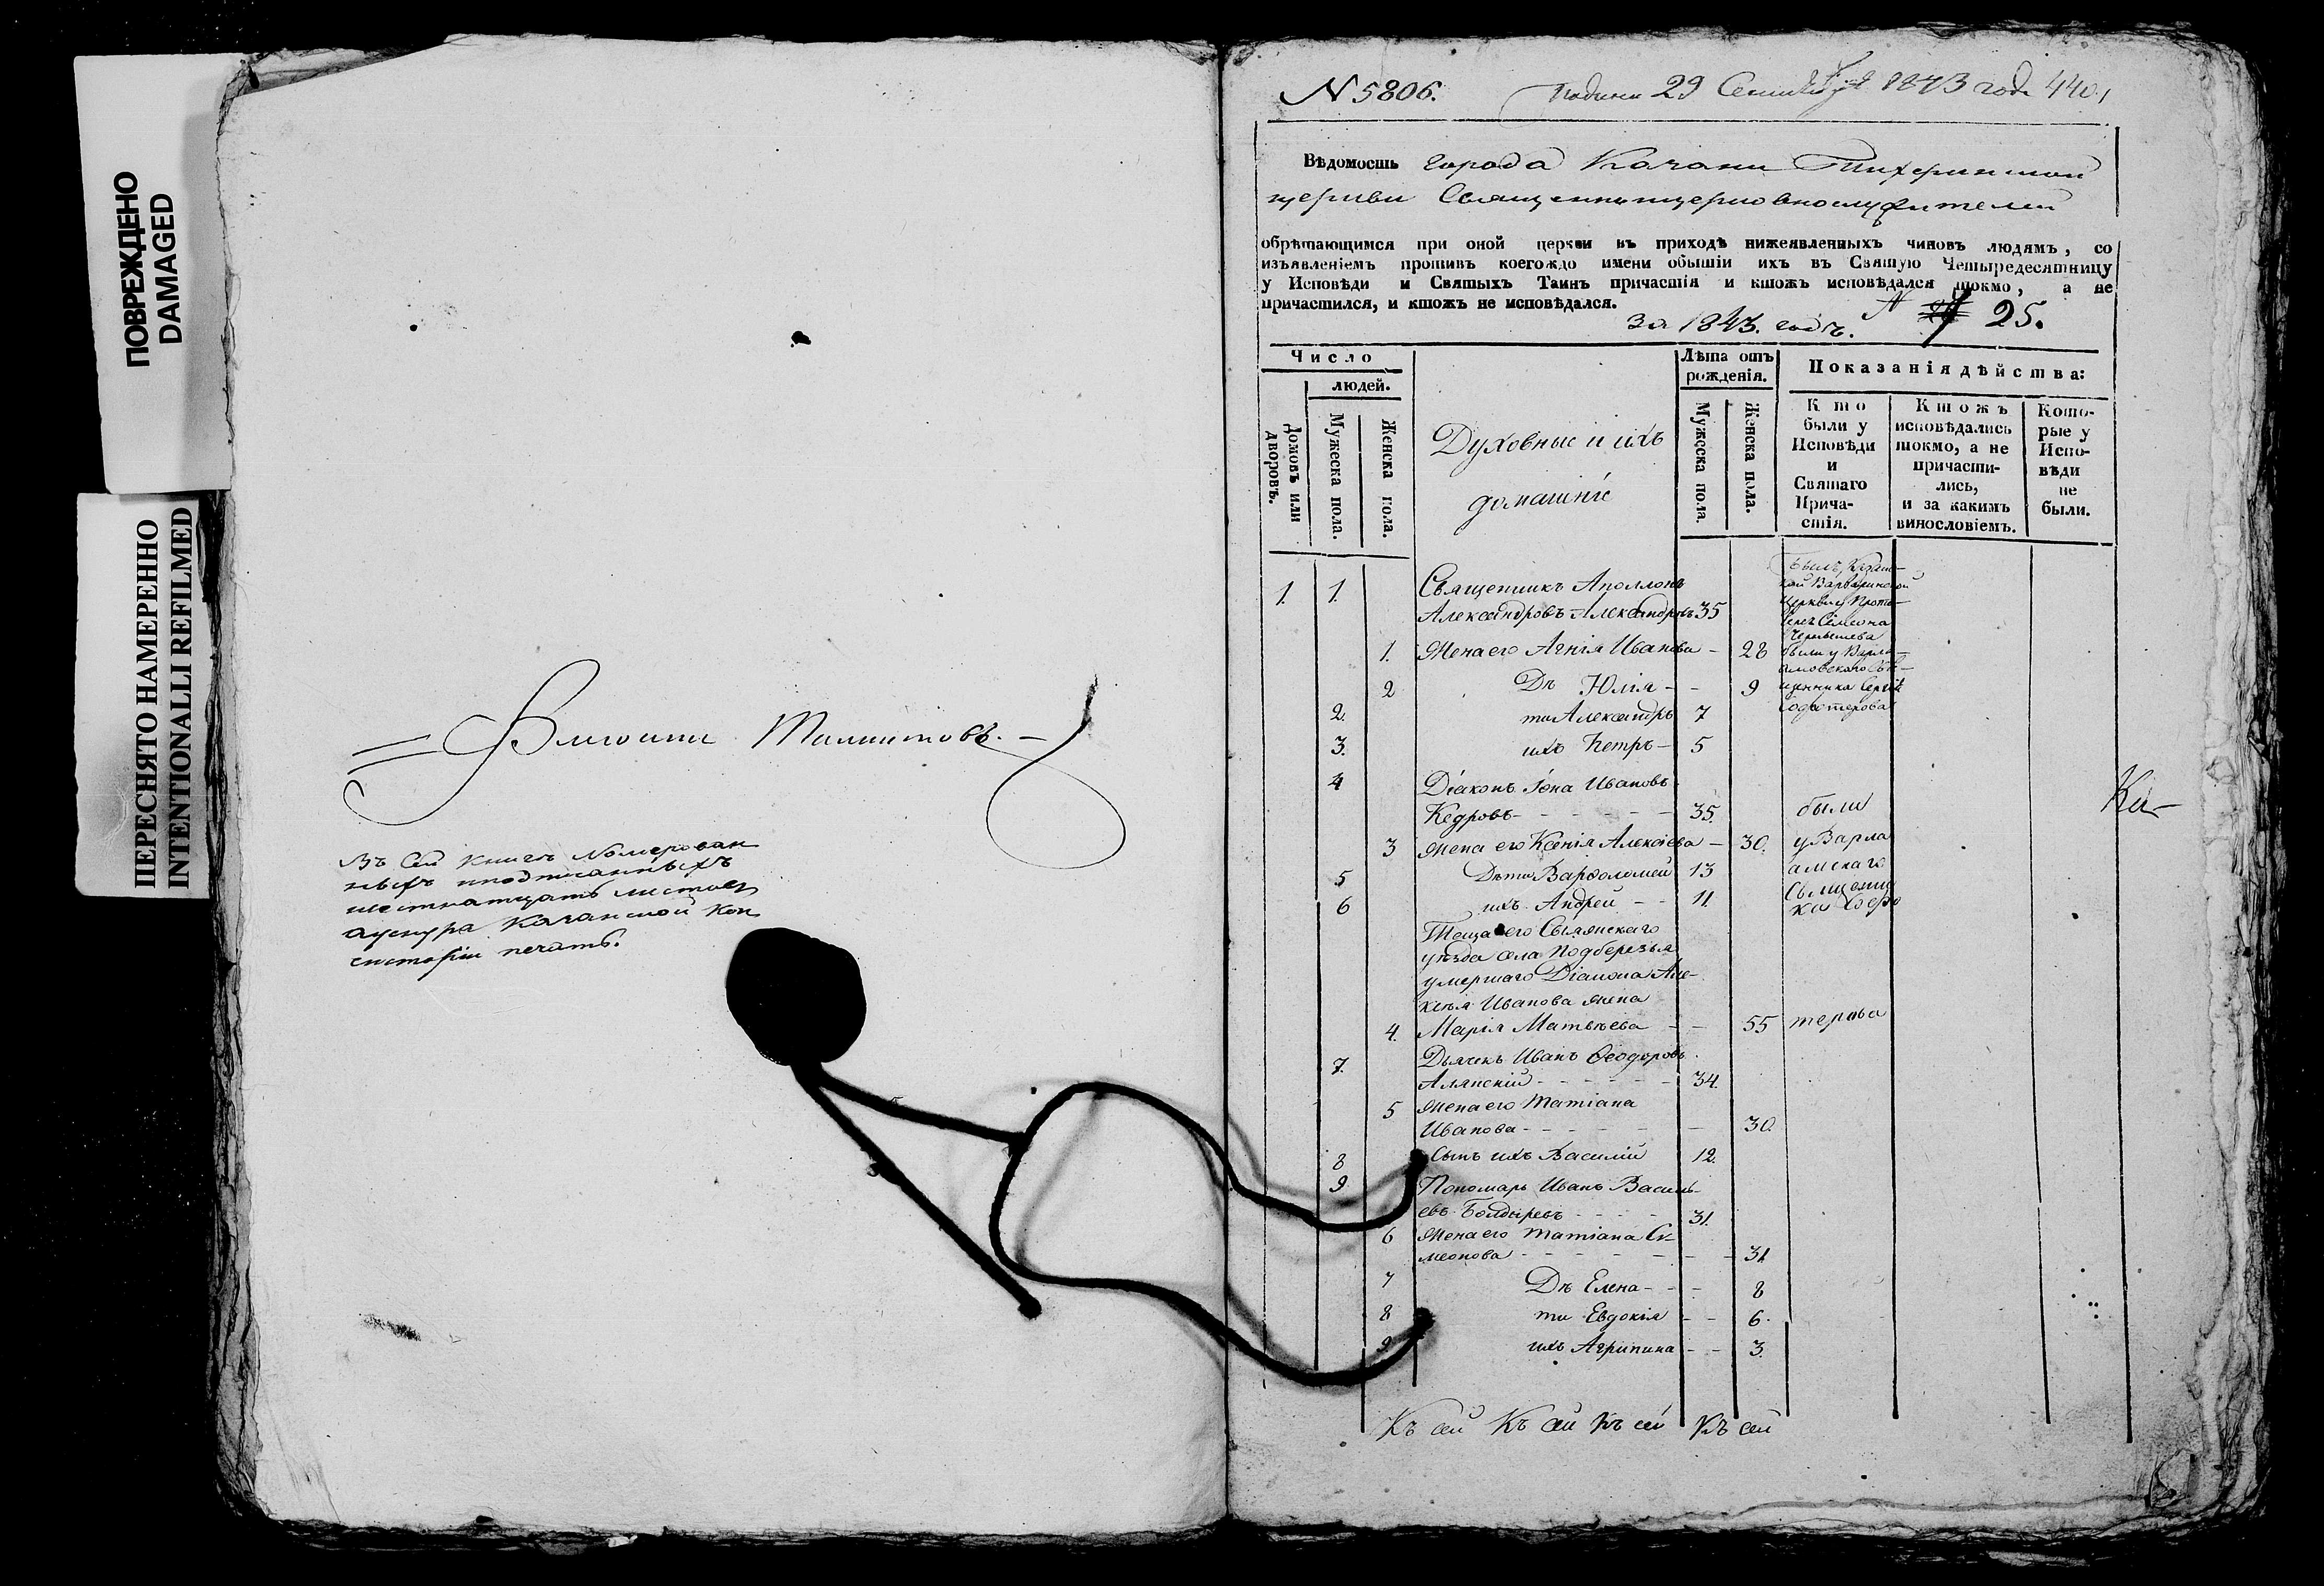 ПОВРЕЖДЕНО
DAMAGED
ПЕРЕСНЯТО НАМЕРЕННО
INTENTIONALLI REFILMED
Въ сей книге номерован
ныхъ и подписанныхъ
шестнатцать листовъ
Казанской Кон
систоріи печать.
N 5806. 29 1843 года 440
Вѣдомость города Казани Тихвинской
церкви Священноцерковнослужителей
обрѣтающимся при оной церкви въ приходѣ нижеявленныхъ чиновъ людямъ, со
изъявленіемъ противъ коегождо имени бытіи ихъ въ Святую Четыредесятницу
у Исповѣди и Святыхъ Таинъ причастія и ктожъ исповѣдался токмо, а не
причастился, и ктожъ не исповѣдался.
За 1843. годъ. N 25.
Число
людей.
Домовъ или дворовъ.
Мужеска пола.
Женска пола.
Духовные и ихъ
домашніе
Лѣта отъ
рожденія.
Мужеска пола.
Женска пола.
Показанія дѣйства:
Кто
были у
Исповѣди
и
Святаго
Прича-
стія.
Ктожъ
исповѣдались
токмо, а не
причасти-
лись,
и за какимъ
винословіемъ.
Кото-
рые у
Испо-
вѣди
не
были.
1. 1. Священникъ Аполлонъ
Александровъ Александровъ 35
Былъ
Варваринской
Церкви у Прото-
іерея Симеона
1. Жена его Агнія Иванова - 28
были у Варла-
амовскаго Свя-
щенника Сергія
2 Дѣ Юлія - - 9
2. ти Александръ 7
3. ихъ Петръ - 5
4 Діаконъ Іона Ивановъ
Кедровъ - - - 35. были
3 Жена его Ксенія Алексіева - 30. у Варла
5 Дѣти Варѳоломей 13 амскаго
6 ихъ Андрей - - 11. Священни
ка
Теща его Свіяжскаго
уѣзда села Подберезья
умершаго Діакона Але-
ксѣя Иванова жена
4. Марія Матвѣева - - 55
7. Дьячекъ Иванъ Ѳеодоровъ
Алянскій - - - 34.
5 Жена его Татіана
Иванова - - - 30.
8 Сынъ ихъ Василій 12.
9. Пономарь Иванъ Василь-
евъ Болдыревъ - - - 31.
6 Жена его Татіана Си-
меонова - - - 31
7 Дѣ Елена - - - 8
8 ти Евдокія - - 6.
9 ихъ Агрипина - - 3.
Къ сей Къ сей Къ сей Къ сей